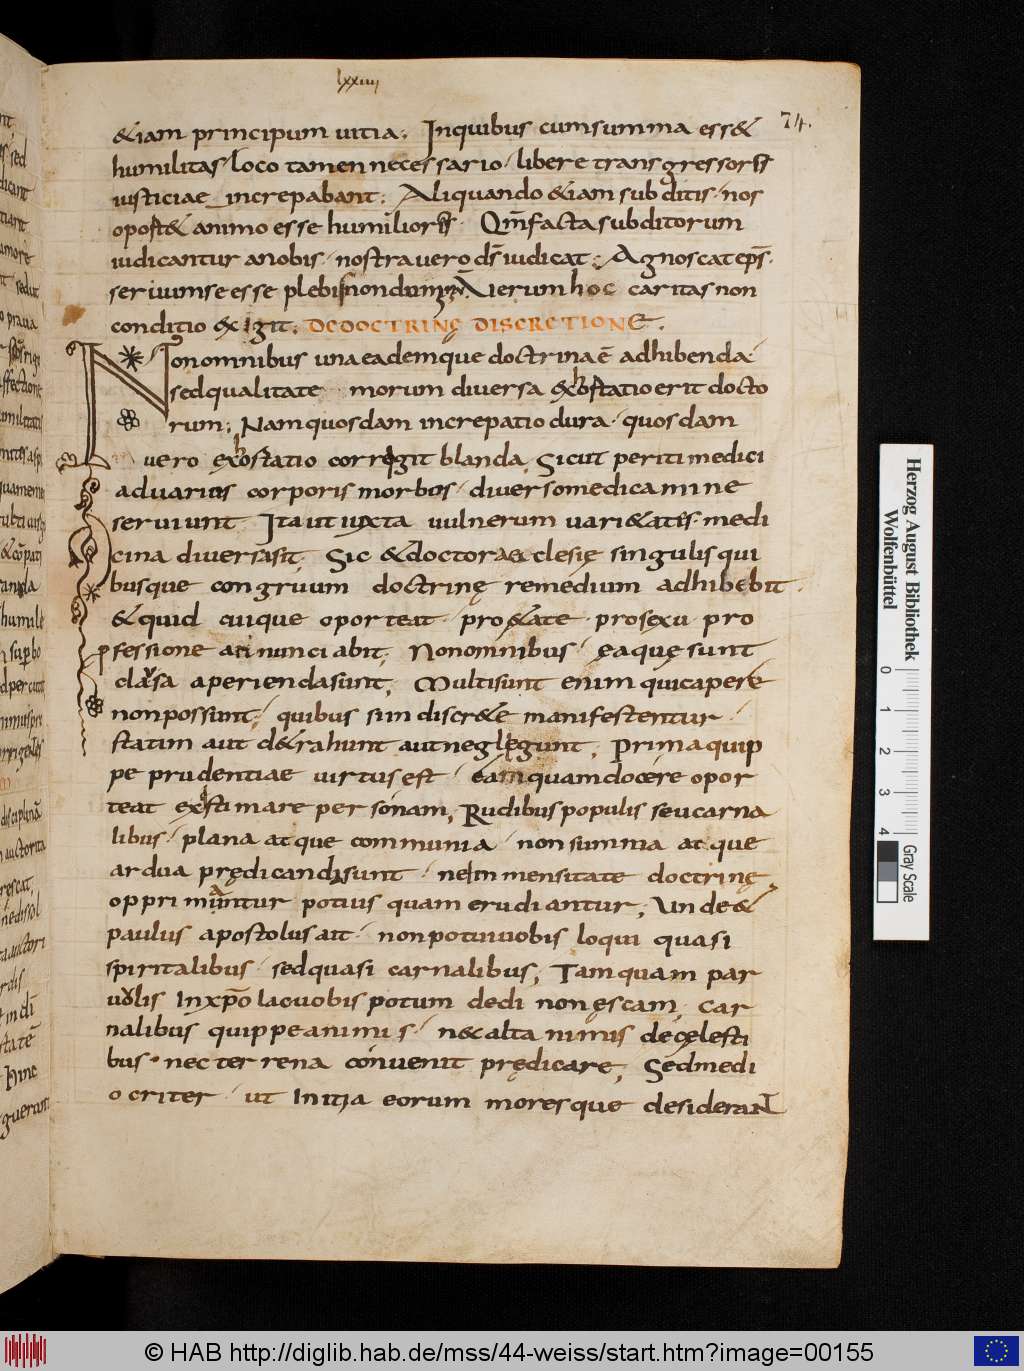 lxxiiij
74.
&iam principum uitia; Inquibus cumsumma ess&
humilitas loco tamen necessario libere transgressoris
iusticiae increpabant; Aliquando &iam subditis nos
oport& animo esse humiliores Qm̄ facta subditorum
iudicantur anobis nostra uero ds̄ iudicat; Agnoscat ep̄s
seruum se esse plebis non dnm̄ Uerum hoc caritas non
conditio exigit; DE DOCTRINĘ DISCRETIONE.
Non omnibus una eademque doctrina ē adhibenda
sed qualitate morum diuersa exhortatio erit docto
rum; Nam quosdam increpatio dura quosdam
uero exhortatio corrigit blanda, Sicut periti medici
ad uarios corporis morbos diuerso medicamine
seruiunt Ita ut iuxta uulnerum uari&atis medi
cina diuersa sit; Sic & doctor aecclesię singulis qui
busque congruum doctrinę remedium adhibebit
& quid cuique oporteat pro &ate pro sexu pro
professione annunciabit; Non omnibus ea quę sunt
clausa aperienda sunt; Multi sunt enim qui capere
non possunt; quibus si indiscr&e manifestentur
statim aut d&rahunt aut neglegunt; Prima quip
pe prudentiae uirtus est eam quam docere opor
teat existimare personam, Rudibus populis seu carna
libus plana atque communia non summa atque
ardua prędicanda sunt ne Inmensitate doctrinę
opprimantur potius quam erudiantur; Unde &
paulus apostolus ait non potui uobis loqui quasi
spiritalibus sed quasi carnalibus; Tamquam par
uolis In xp̄o lac uobis potum dedi non ęscam, Car
nalibus quippe animis nec alta nimis de cęlesti
bus nec terrena conuenit prędicare, Sed medi
ocriter ut Initia eorum moresque desiderant
Herzog August Bibliothek
Wolfenbüttel
0 1 2 3 4
Gray Scale
© HAB http://diglib.hab.de/mss/44-weiss/start.htm?image=00155